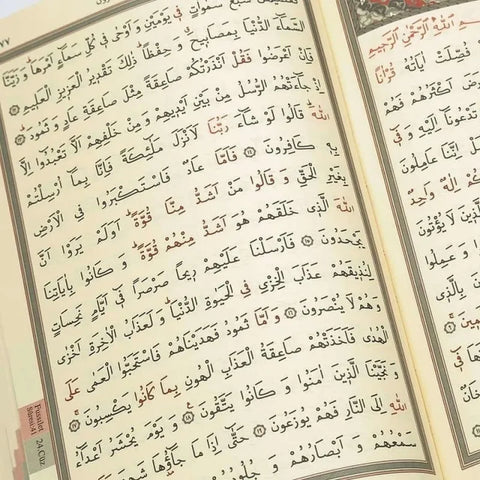 اللّٰهِ الرَّحْمٰنِ الرَّحِيمِ
فُصِّلَتْ اٰيَاتُهُ قُرْاٰنًا
اَكْثَرُهُمْ فَهُمْ
تَدْعُونَا اِلَيْهِ وَ فِى
اِنَّنَا عَامِلُونَ
اِلٰهٌ وَاحِدٌ
لَا يُؤْتُونَ
وَ عَمِلُوا
بِالَّذِى
٧٧
سَمٰوَاتٍ فِى يَوْمَيْنِ وَ اَوْحٰى فِى كُلِّ سَمَٓاءٍ اَمْرَهَا وَ زَيَّنَّا
السَّمَٓاءَ الدُّنْيَا بِمَصَابِيحَ وَ حِفْظًا ذٰلِكَ تَقْدِيرُ الْعَزِيزِ الْعَلِيمِ ﴿١٢﴾
فَاِنْ اَعْرَضُوا فَقُلْ اَنْذَرْتُكُمْ صَاعِقَةً مِثْلَ صَاعِقَةِ عَادٍ وَ ثَمُودَ ﴿١٣﴾
اِذْ جَٓاءَتْهُمُ الرُّسُلُ مِنْ بَيْنِ اَيْدِيهِمْ وَ مِنْ خَلْفِهِمْ اَلَّا تَعْبُدُٓوا اِلَّا
اللّٰهَ قَالُوا لَوْ شَٓاءَ رَبُّنَا لَاَنْزَلَ مَلٰٓئِكَةً فَاِنَّا بِمَٓا اُرْسِلْتُمْ
بِهِ كَافِرُونَ ﴿١٤﴾ فَاَمَّا عَادٌ فَاسْتَكْبَرُوا فِى الْاَرْضِ
بِغَيْرِ الْحَقِّ وَ قَالُوا مَنْ اَشَدُّ مِنَّا قُوَّةً اَوَلَمْ يَرَوْا اَنَّ
اللّٰهَ الَّذِى خَلَقَهُمْ هُوَ اَشَدُّ مِنْهُمْ قُوَّةً وَ كَانُوا بِاٰيَاتِنَا
يَجْحَدُونَ ﴿١٥﴾ فَاَرْسَلْنَا عَلَيْهِمْ رِيحًا صَرْصَرًا فِٓى اَيَّامٍ نَحِسَاتٍ
لِنُذِيقَهُمْ عَذَابَ الْخِزْىِ فِى الْحَيٰوةِ الدُّنْيَا وَ لَعَذَابُ الْاٰخِرَةِ اَخْزٰى
وَ هُمْ لَا يُنْصَرُونَ ﴿١٦﴾ وَ اَمَّا ثَمُودُ فَهَدَيْنَاهُمْ فَاسْتَحَبُّوا الْعَمٰى عَلَى
الْهُدٰى فَاَخَذَتْهُمْ صَاعِقَةُ الْعَذَابِ الْهُونِ بِمَا كَانُوا يَكْسِبُونَ ﴿١٧﴾
وَ نَجَّيْنَا الَّذِينَ اٰمَنُوا وَ كَانُوا يَتَّقُونَ ﴿١٨﴾ وَ يَوْمَ يُحْشَرُ اَعْدَٓاءُ
اللّٰهِ اِلَى النَّارِ فَهُمْ يُوزَعُونَ ﴿١٩﴾ حَتّٰٓى اِذَا مَا جَٓاؤُهَا شَهِدَ
سَمْعُهُمْ وَ اَبْصَارُهُمْ وَ جُلُودُهُمْ
Fussilet Sûresi:41
24.Cüz